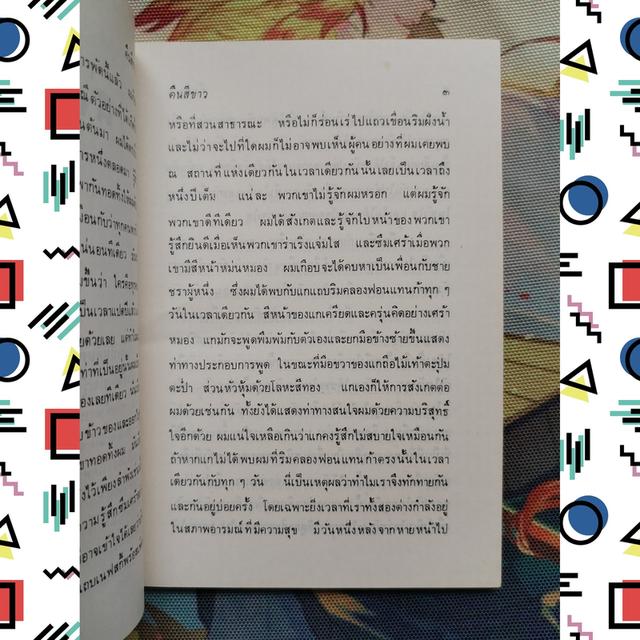 คืนสีขาว
๓
หรือที่สวนสาธารณะ หรือไม่ก็ร่อนเร่ไปแถวเขื่อนริมฝั่งน้ำ
และไม่ว่าจะไปที่ใดผมก็ไม่อาจพบเห็นผู้คนอย่างที่ผมเคยพบ
ณ สถานที่แห่งเดียวกันในเวลาเดียวกันนั้นเลยเป็นเวลาถึง
หนึ่งปีเต็ม แน่ละ พวกเขาไม่รู้จักผมหรอก แต่ผมรู้จัก
พวกเขาดีทีเดียว ผมได้สังเกตและรู้จักใบหน้าของพวกเขา
รู้สึกยินดีเมื่อเห็นพวกเขาร่าเริงแจ่มใส และซึมเศร้าเมื่อพวก
เขามีสีหน้าหม่นหมอง ผมเกือบจะได้คบหาเป็นเพื่อนกับชาย
ชราผู้หนึ่ง ซึ่งผมได้พบกับแกแถบริมคลองฟอนแทนก้าทุก ๆ
วันในเวลาเดียวกัน สีหน้าของแกเครียดและครุ่นคิดอย่างเศร้า
หมอง แกมักจะพูดพึมพัมกับตัวเองและยกมือข้างซ้ายขึ้นแสดง
ท่าทางประกอบการพูด ในขณะที่มือขวาของแกถือไม้เท้าตะปุ่ม
ตะป่ำ ส่วนหัวหุ้มด้วยโลหะสีทอง แกเองก็ให้การสังเกตต่อ
ผมด้วยเช่นกัน ทั้งยังได้แสดงท่าทางสนใจผมด้วยความบริสุทธิ์
ใจอีกด้วย ผมแน่ใจเหลือเกินว่าแกคงรู้สึกไม่สบายใจเหมือนกัน
ถ้าหากแกไม่ได้พบผมที่ริมคลองฟอนแทนก้าตรงนั้นในเวลา
เดียวกันกับทุก ๆ วัน นี่เป็นเหตุผลว่าทำไมเราจึงทักทายกัน
และกันอยู่บ่อยครั้ง โดยเฉพาะยิ่งเวลาที่เราทั้งสองต่างกำลังอยู่
ในสภาพอารมณ์ที่มีความสุข มีวันหนึ่งหลังจากหายหน้าไป